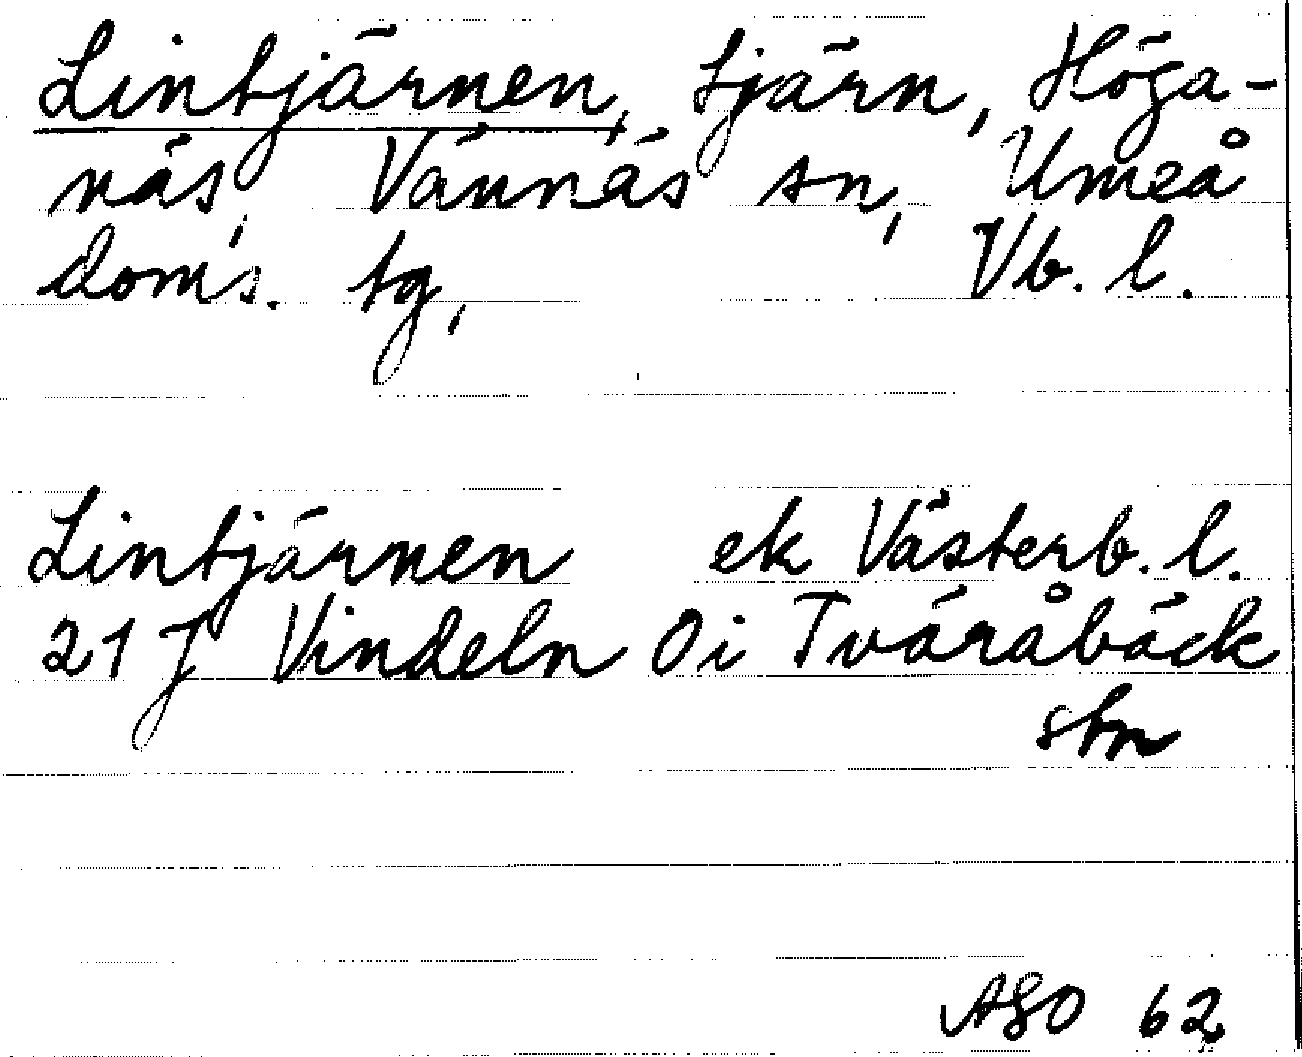 Lintjärnen, tjärn, Höga-
näs, Vännäs sn, Umeå
doms. tg, Vb. l.
Lintjärnen ek Västerb. l.
21 J Vindeln Ö i Tväråbäck
stn
ASO 62